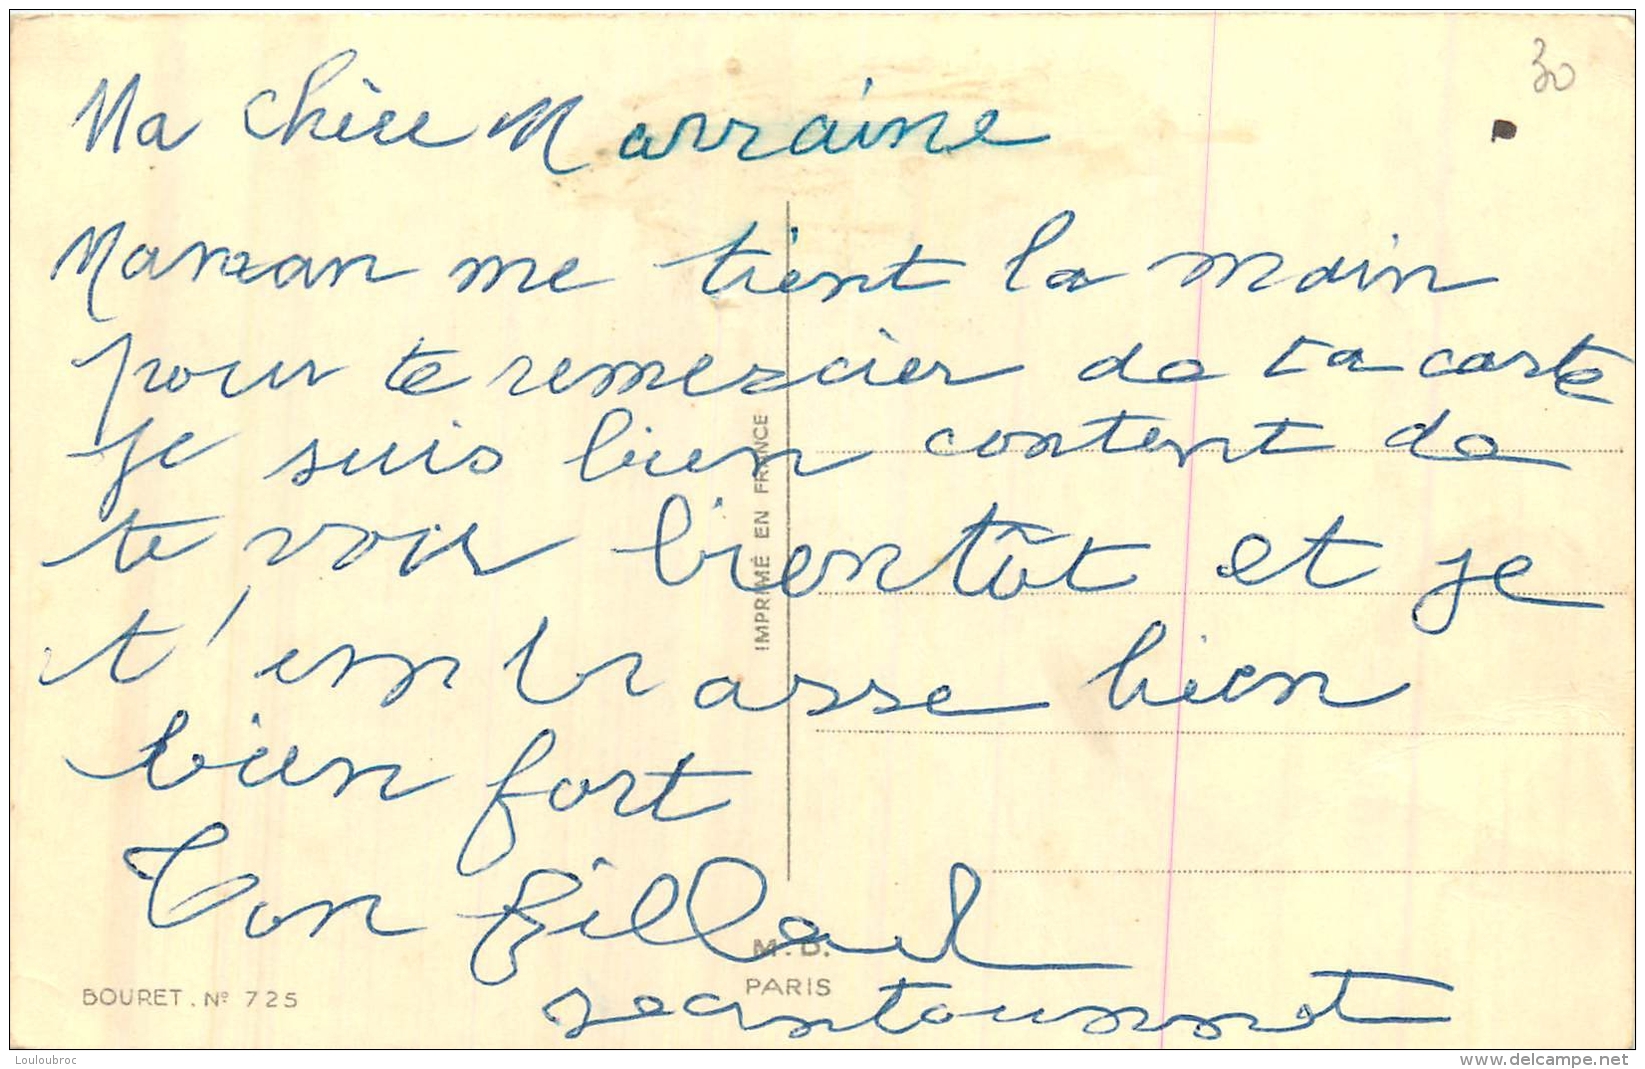 30
Ma Chère Marraine
Maman me tient la main
pour te remercier de ta carte
je suis bien content de
te voir bientôt et je
t'embrasse bien
bien fort
Ton filleul
IMPRIMÉ EN FRANCE
M. D.
PARIS
BOURET. Nº 725
Louloubroc
www.delcampe.net